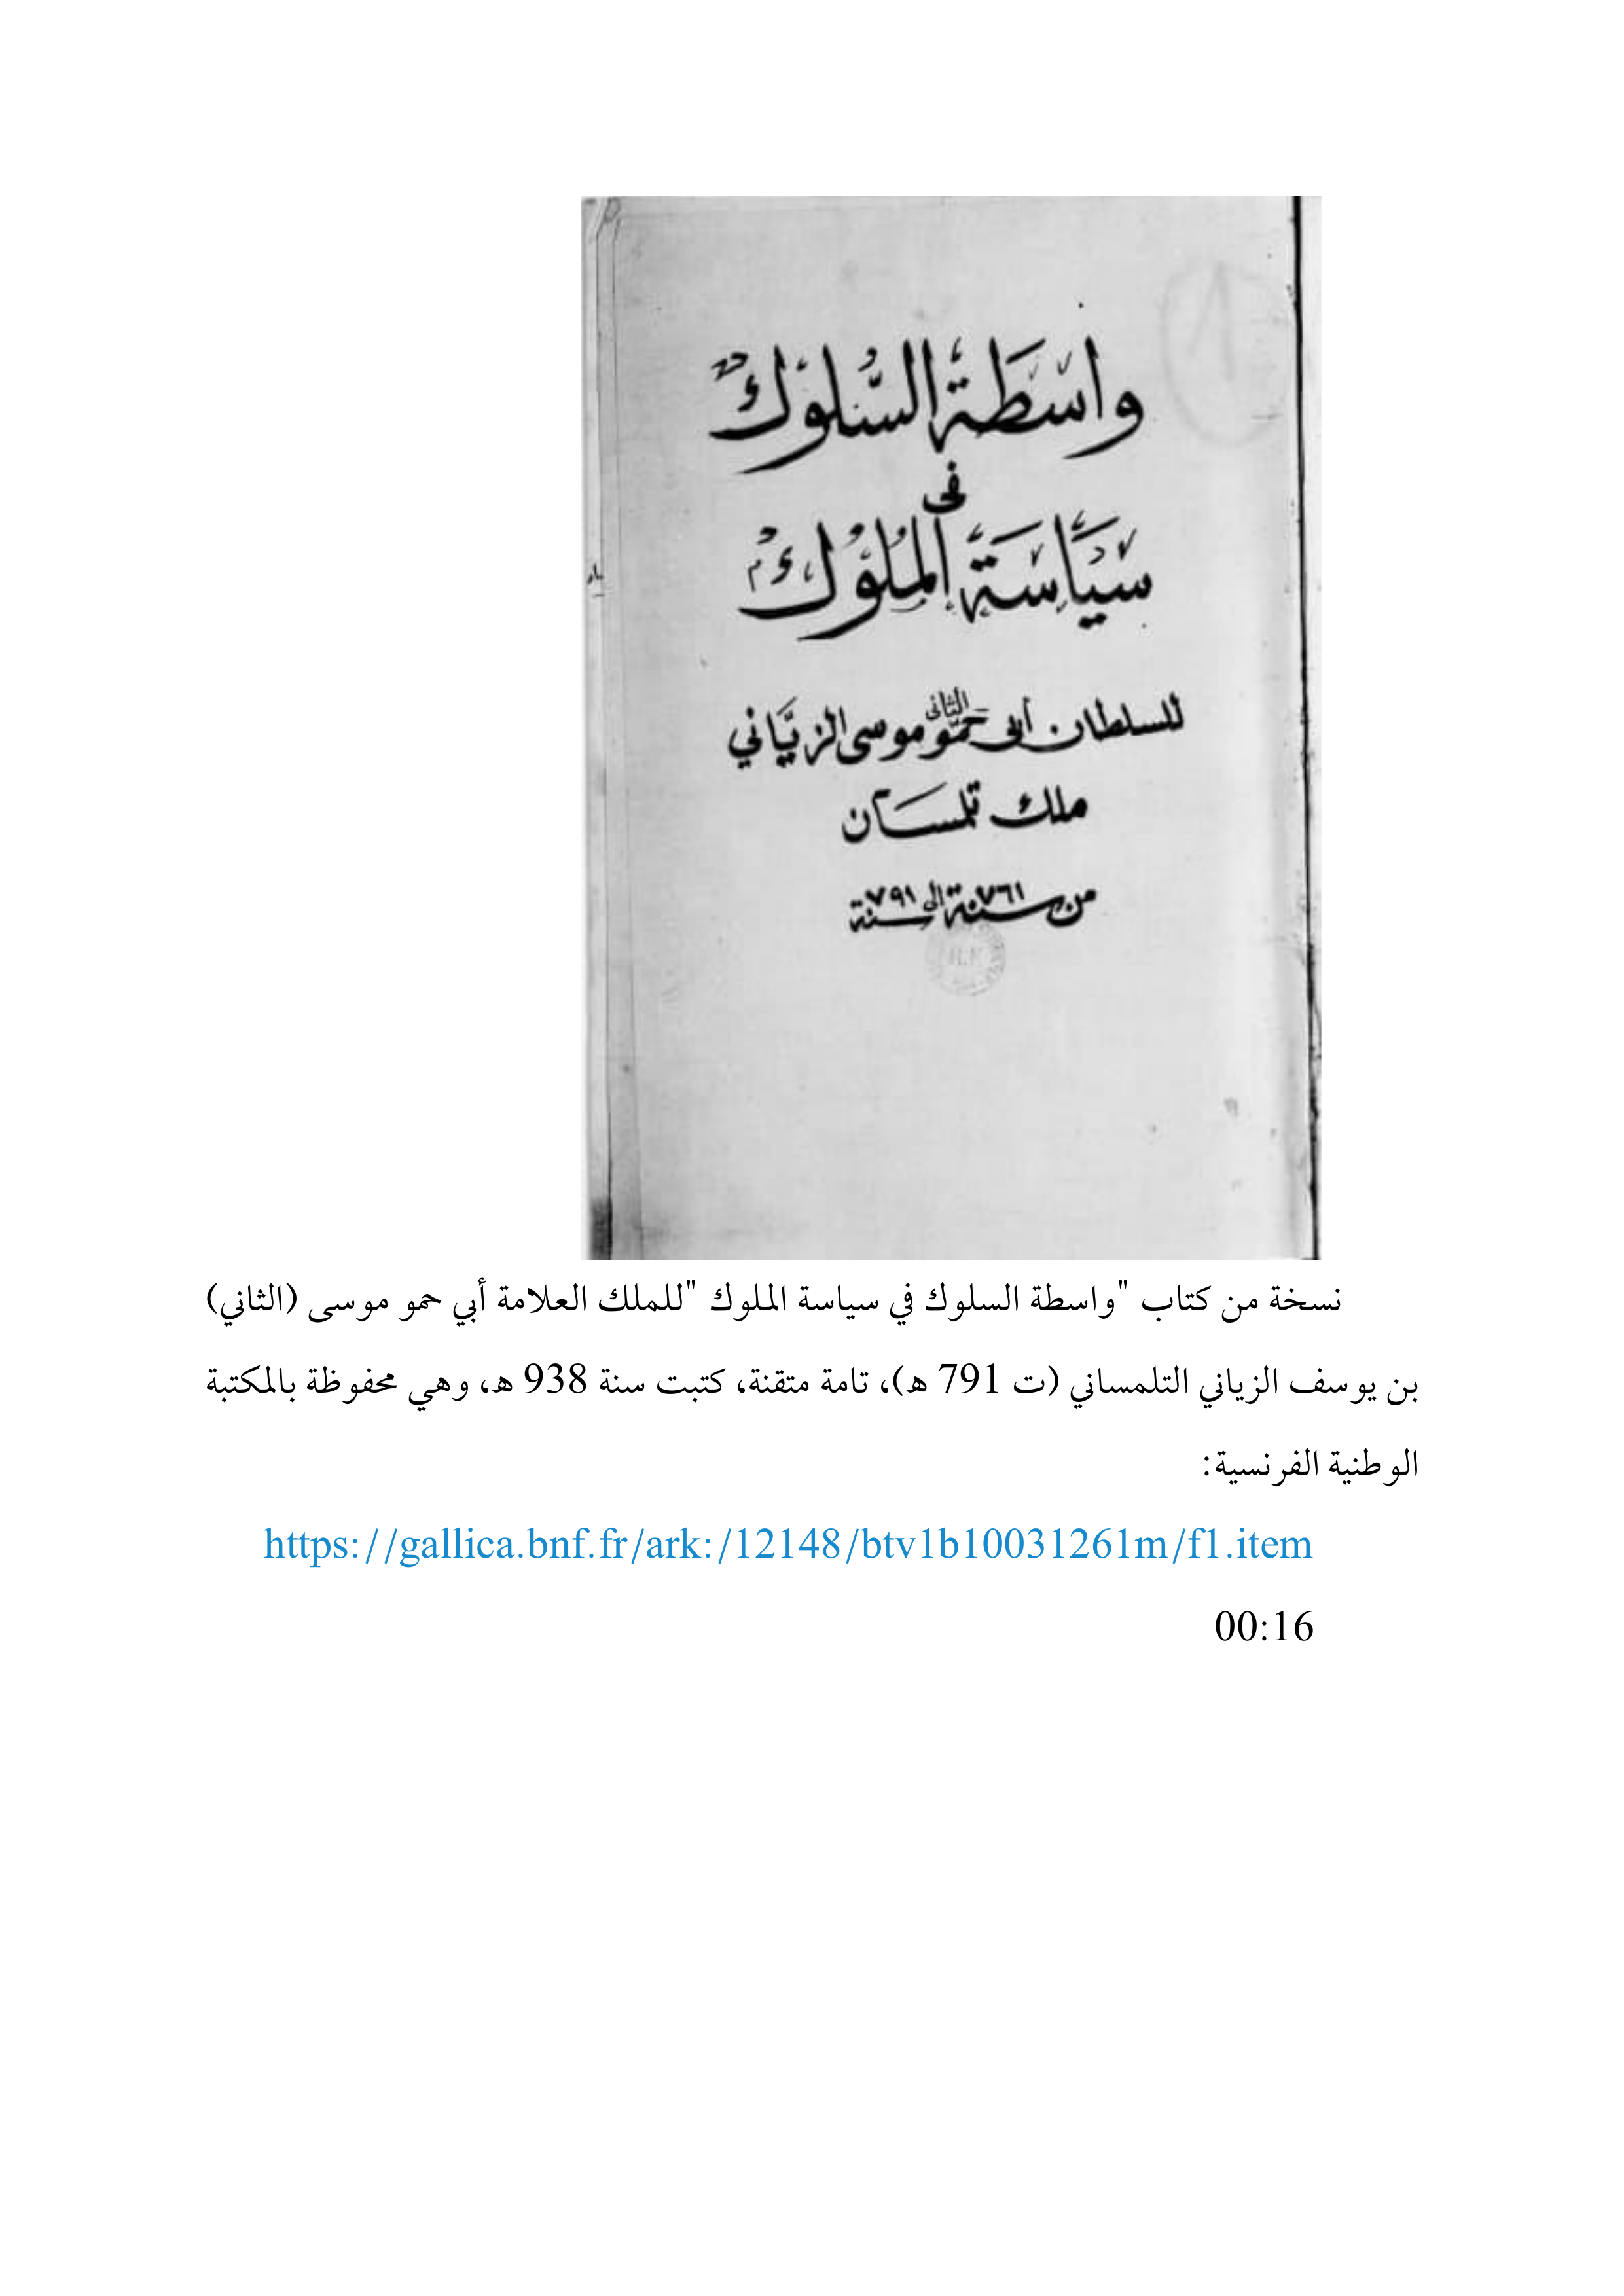 واسطة السلوك
في
سياسة الملوك
للسلطان أبي حمّو الثاني موسى الزيّاني
ملك تلمسان
من سنة ٧٦١ الى سنة ٧٩١
نسخة من كتاب "واسطة السلوك في سياسة الملوك "للملك العلامة أبي حمو موسى (الثاني)
بن يوسف الزياني التلمساني (ت 791 هـ)، تامة متقنة، كتبت سنة 938 هـ، وهي محفوظة بالمكتبة
الوطنية الفرنسية:
https://gallica.bnf.fr/ark:/12148/btv1b10031261m/f1.item
00:16